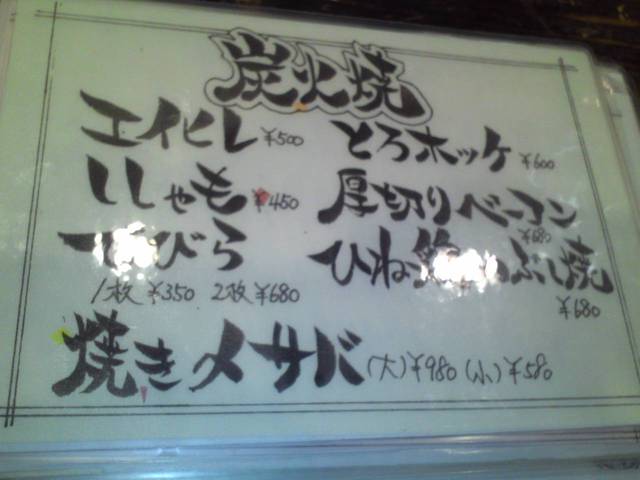 炭火焼
エイヒレ ¥500
とろホッケ ¥600
ししゃも ¥450
厚切りベーコン ¥680
びら
1枚 ¥350 2枚 ¥680
ひね ぶし焼 ¥680
焼きメサバ (大)¥980 (小)¥580